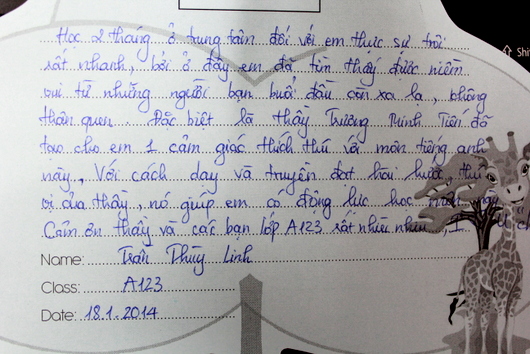 Học 2 tháng ở trung tâm đối với em thực sự trôi
rất nhanh, bởi ở đây em đã tìm thấy được niềm
vui từ những người bạn buổi đầu còn xa lạ, không
thân quen. Đặc biệt là thầy Trương Minh Tiến đã
tạo cho em 1 cảm giác thích thú với môn tiếng anh
này. Với cách dạy và truyền đạt hài hước, thú
vị của thầy, nó giúp em có động lực học
Cảm ơn thầy và các bạn lớp A123 rất nhiều nhiều, 1
Name: Trần Thùy Linh
Class: A123
Date: 18.1.2014
Shi